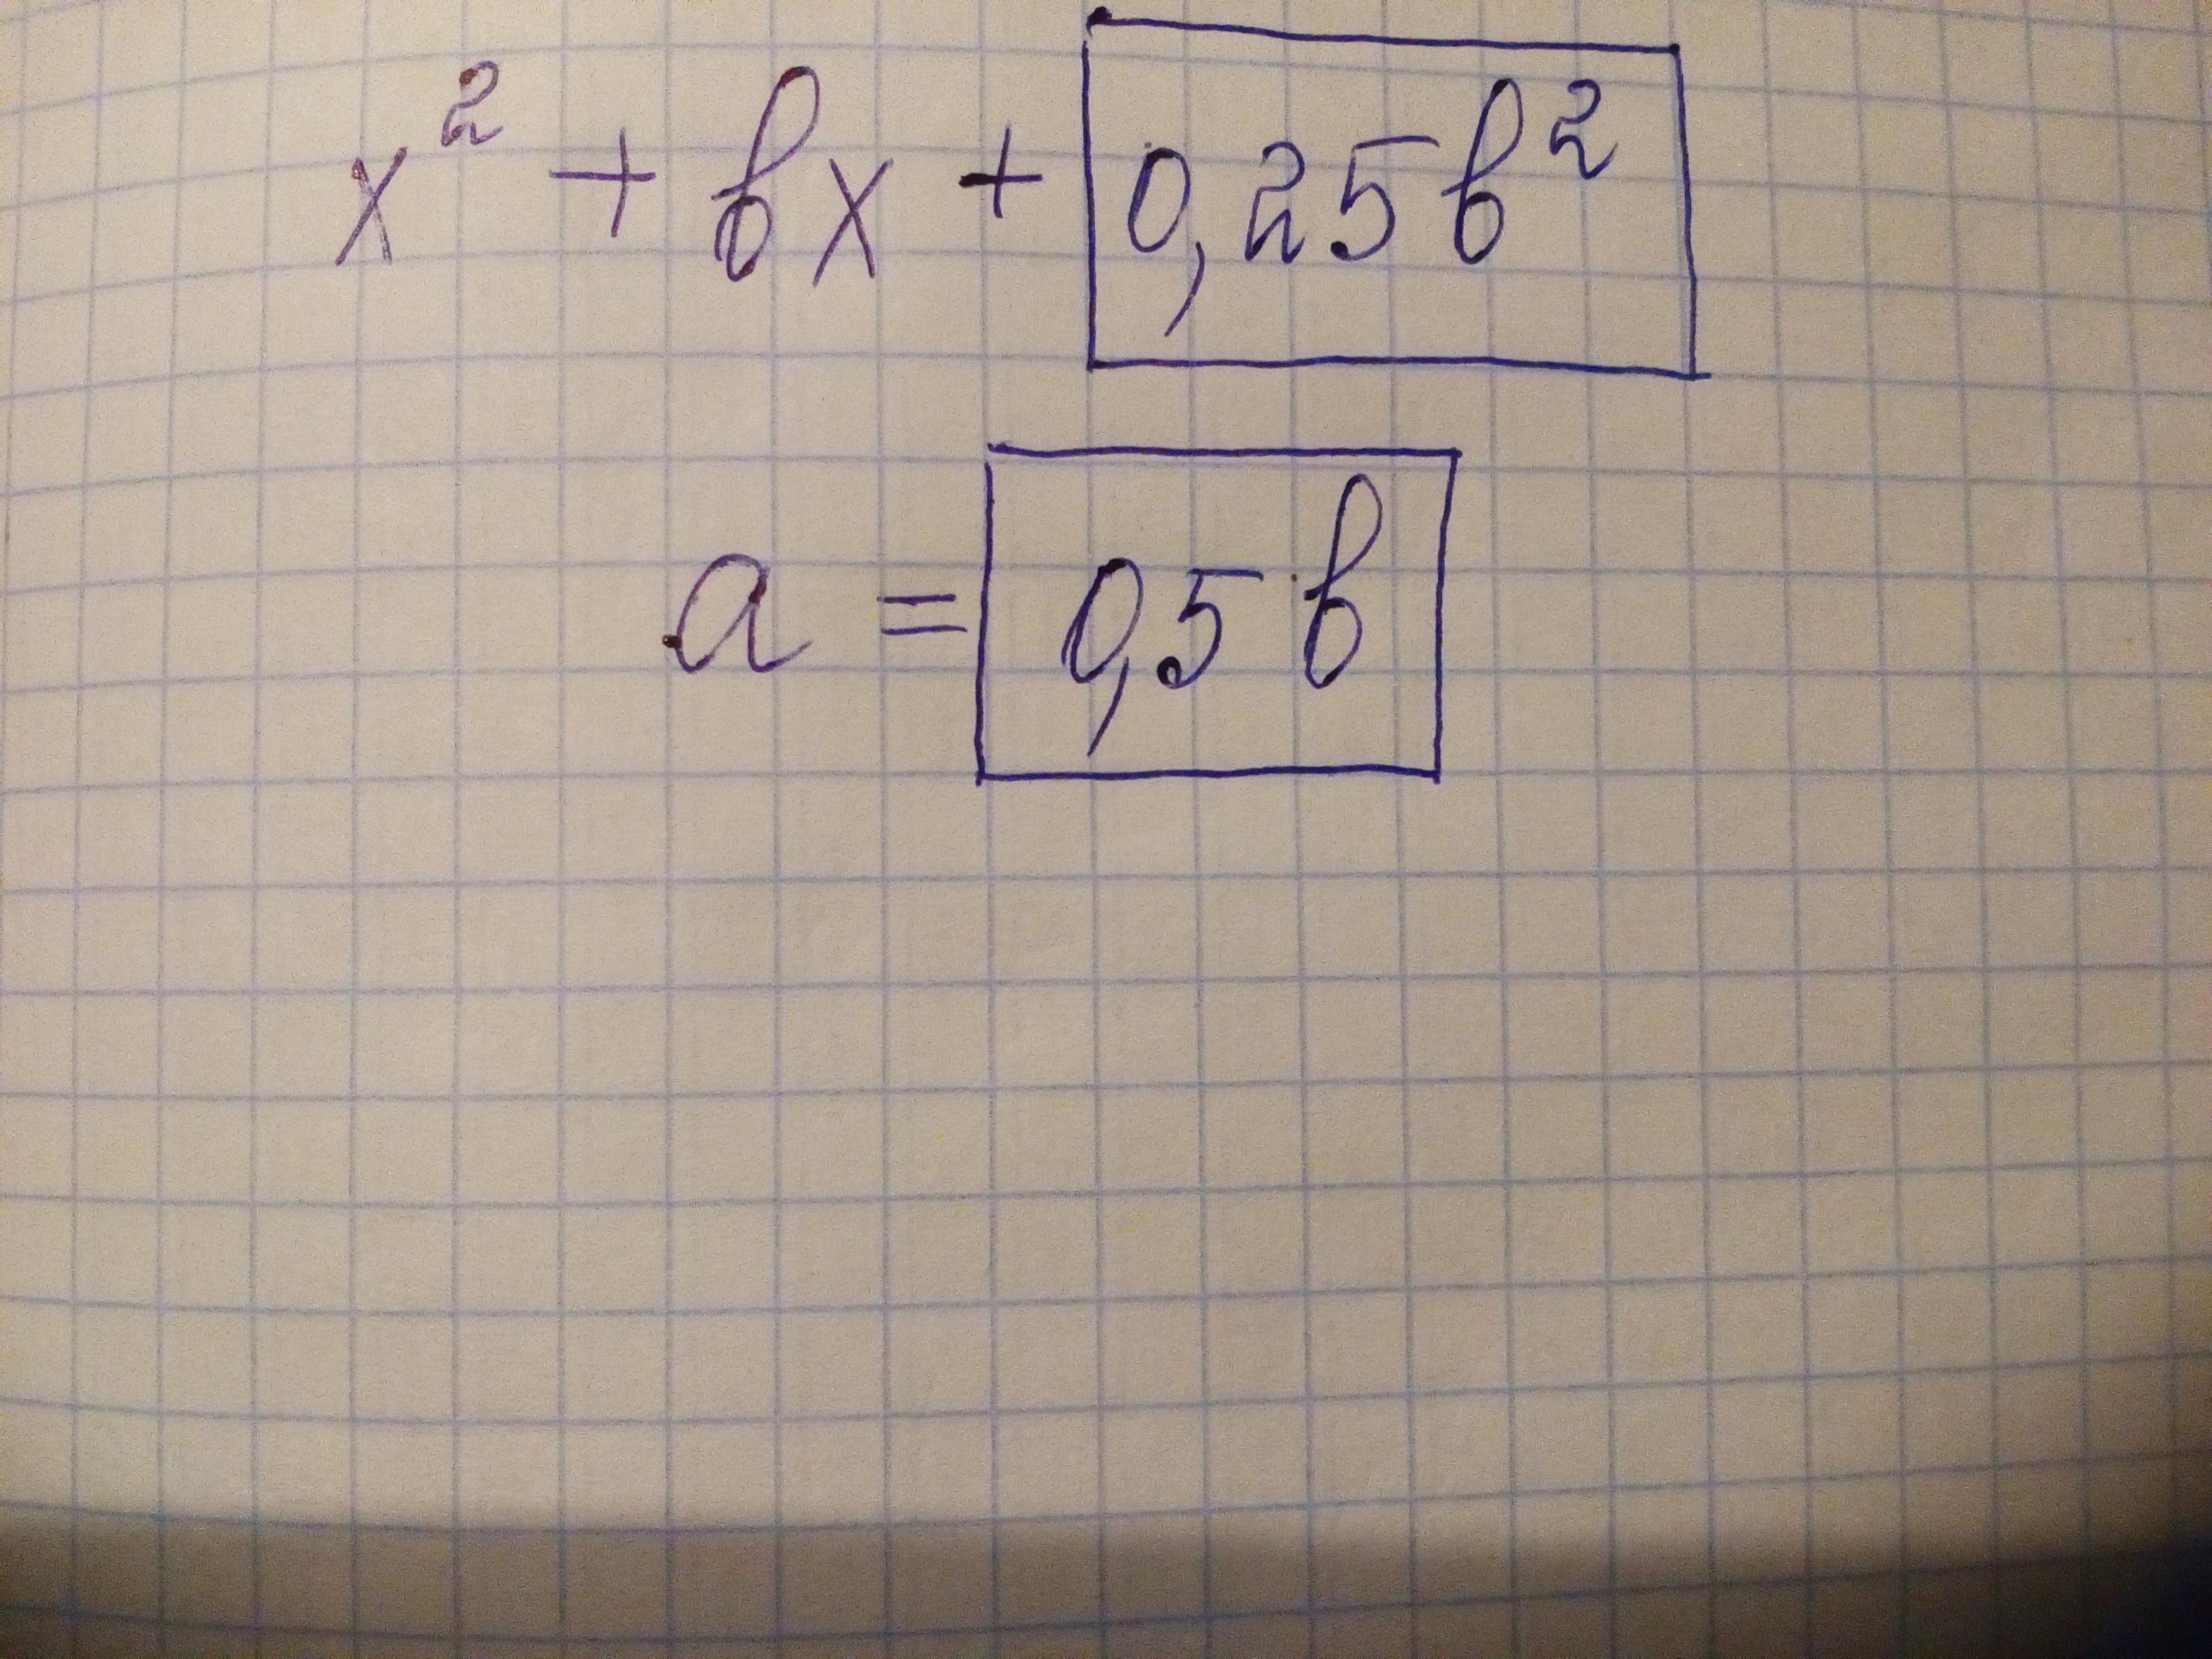 x² + bx + 0,25b²
a = 0,5b